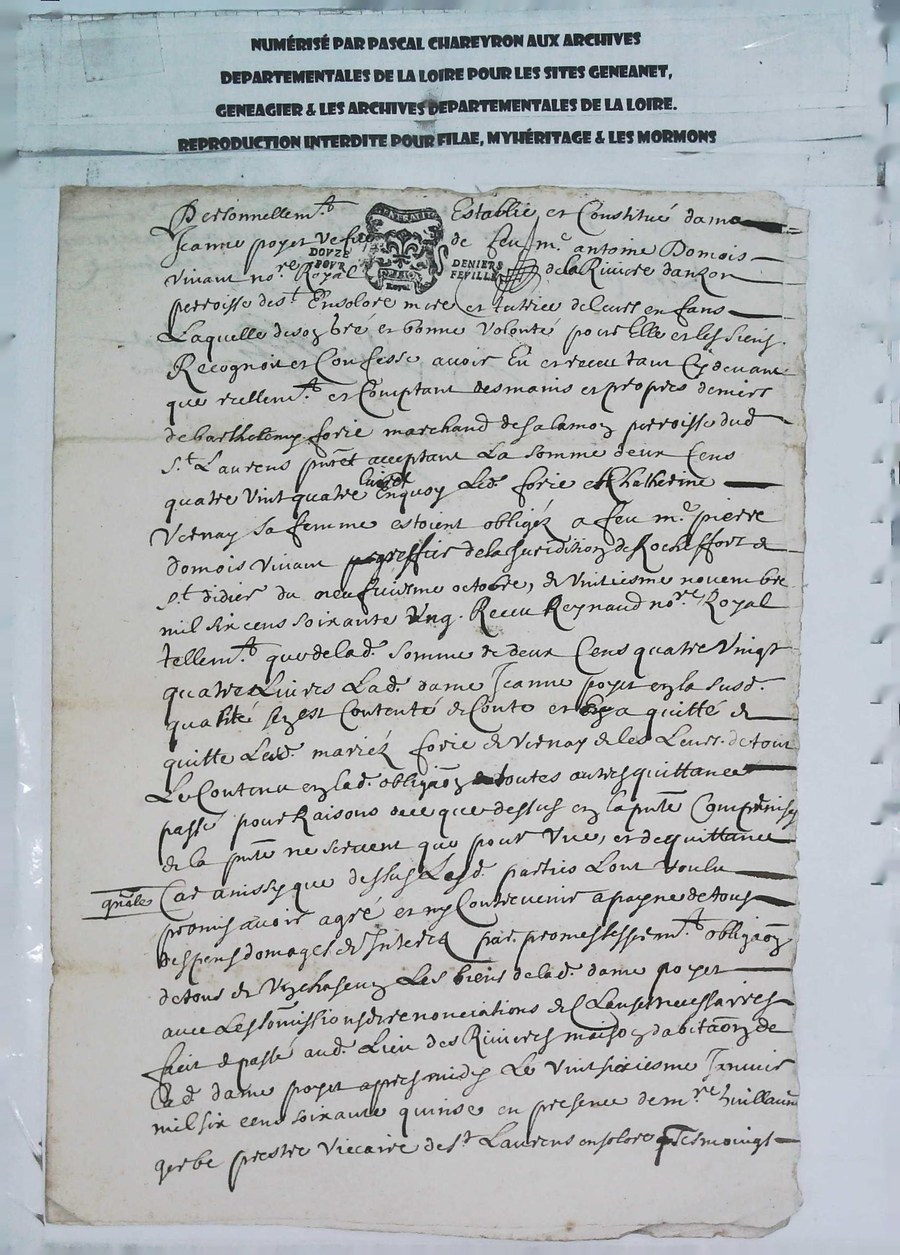 NUMÉRISÉ PAR PASCAL CHAREYRON AUX ARCHIVES
DEPARTEMENTALES DE LA LOIRE POUR LES SITES GENEANET,
GENEAGIER & LES ARCHIVES DEPARTEMENTALES DE LA LOIRE.
REPRODUCTION INTERDITE POUR FILAE, MYHÉRITAGE & LES MORMONS
Personnellem.t Establie et Constitué dame
Jeanne poyet vefve de feu m.e antoine Domois
DOUZE DENIERS
POUR FEUILLE
Royal
vivant no.re Royal de la Riviere danzon
perroisse de s.t Ensolore mere et tutrice de leurs enfans
Laquelle de son gré et bonne volonté pour Elle et les siens
Recognoit et Confesse avoir Eu et receu tant Cy devant
que reellem.t et Comptant des mains et propres deniers
de barthelemy forie marchand de salamon perroisse dud
s.t Laurens pñt acceptant La somme deux Cens
quatre vint quatre livres Enquoy Led. forie et Chatherine
Vernay sa femme estoient obligéz a feu m.e pierre
domois vivant greffier de la Juridition de Rocheffort &
s.t didier du neufviesme octobre, & vintiesme novembre
mil six cens soixante Ung. Receu Reynaud no.re Royal
tellem.t que de lad. somme de deux Cens quatre Vingt
quatre Livres Lad. dame Jeanne poyet en la susd.
qualité sen est Contenté & Conte et en a quitté &
quitte Lesd. mariéz forie & Vernay & les Leurs de tout
Le Contenu en lad. obligãon toutes autres quittances
passé pour Raisons de ce que dessus en la pñte Comprinses
& la pñte ne servent que pour Une, et de quittance
gñale Car ainssy que dessus Lesd. parties Lont voulu
promis avoir agré et ny Contrevenir a payne de tous
despens domages & Interes par promesse serm.t obligãon
de tous & Un chaseun Les biens de lad. dame poyet
avec Les soumissions & renonciations & Clauses necessaires
fait & passé aud. Lieu des Rivieres maison dabitãon de
Lad. dame poyet appres midy Le Vint sixiesme Janvier
mil six cens soixante quinse en presence de m.re Guillaume
gerbe prestre Viccaire de s.t Laurens ensolore tesmoingt